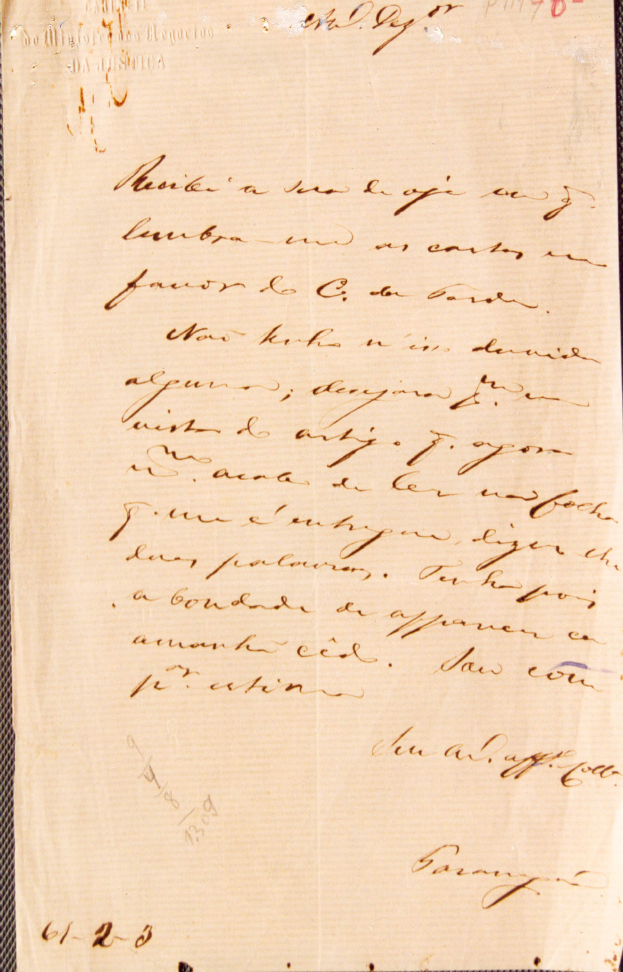 do Ministro dos Negocios
DA JUSTIÇA
Recibi a sua de oje em q.
lembra-me as cartas em
favor do C. da
Não tenho n'isso duvida
alguma; desejara q.
vista do artigo q. agora
m.mo acabo de ler na folha
q. me é entregue, dizer-lhe
duas palavras. Tenha pois
a bondade de apparecer cá
amanhã cêdo. Sou com
p.or estima
Seu Am.
Paranaguá
61-2-3